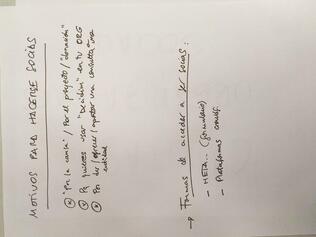 MOTIVOS PARA HACERSE SOCI@S
"Por la causa" / Por el proyecto / "donación"
Pq quieres usar "Decidim" en tu ORG
Por dar / ofrecer / aportar una consulta a una
entidad
→ Formas de acceder a ser soci@s:
- META... (formulario)
- Plataformas crowdf.